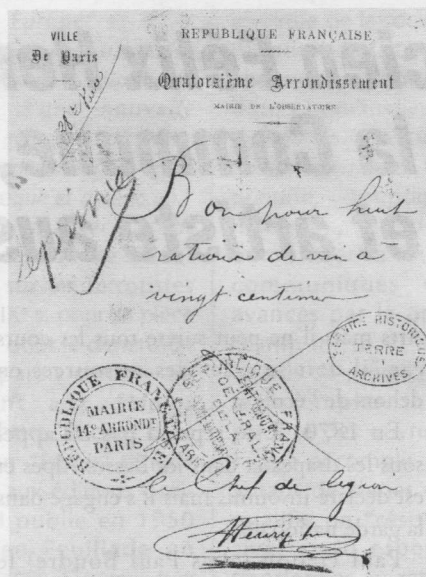 VILLE
De Paris
REPUBLIQUE FRANÇAISE
Quatorzième Arrondissement
MAIRIE DE L'OBSERVATOIRE
Bon pour huit
rations de vin à
vingt centimes
SERVICE HISTORIQUE
TERRE
ARCHIVES
RÉPUBLIQUE FRANÇAISE
MAIRIE
14e ARRONDT
PARIS
RÉPUBLIQUE FRANC
Le Chef de légion
Henry